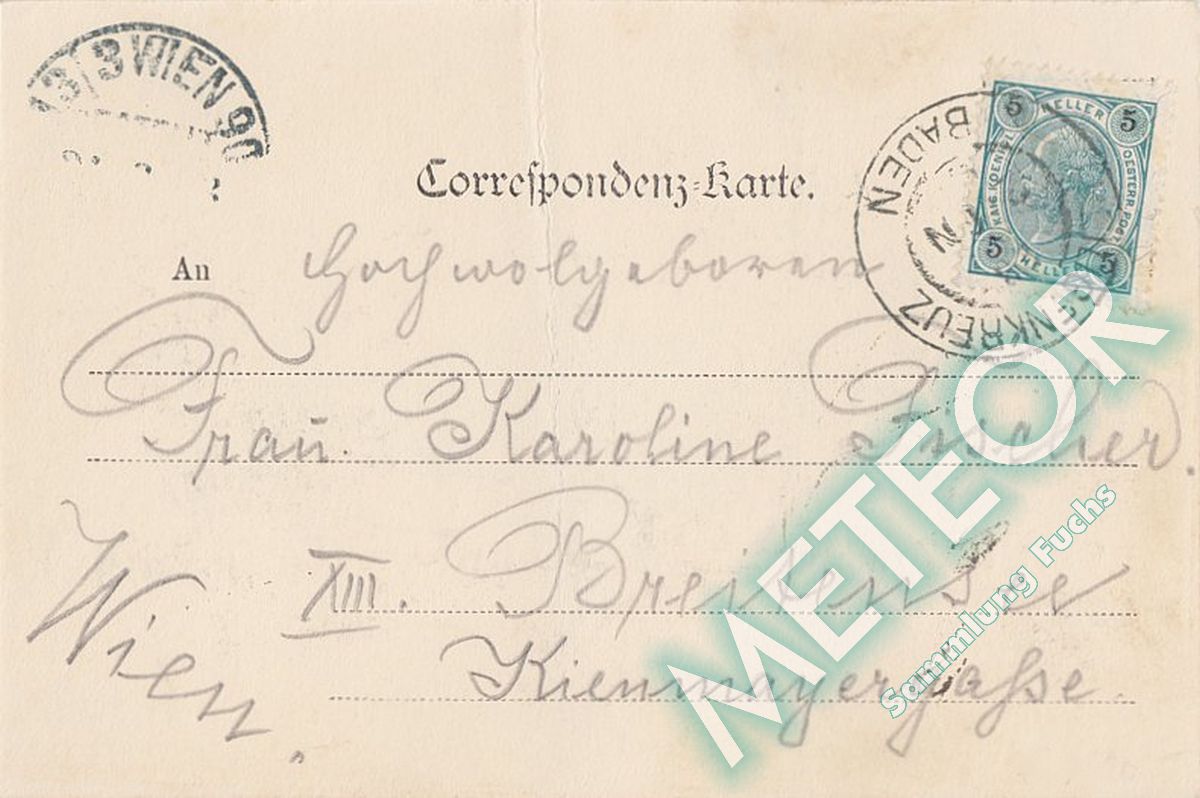 13/3 WIEN 90
Correspondenz-Karte.
BADEN
ENKREUZ
5 HELLER 5
KAIS. KOENIGL.
OESTERR. POST
5 HELLER 5
An Hochwolgeboren
Frau. Karoline Fischer.
Wien. XIII. Breitensee
Kienmayergasse.
METEOR
Sammlung Fuchs